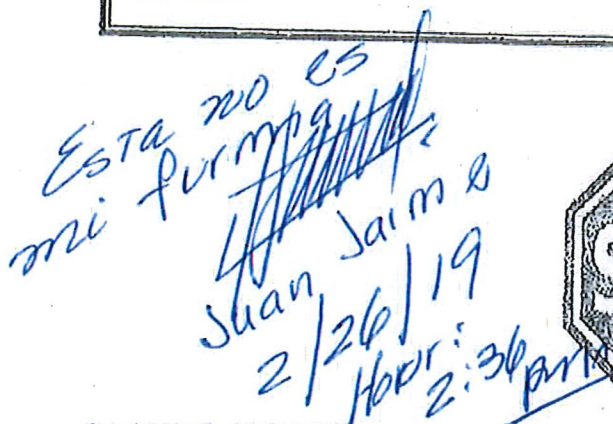 Esta no es
mi furma
Juan Jaime
2/26/19
Hour:
2:36 pm